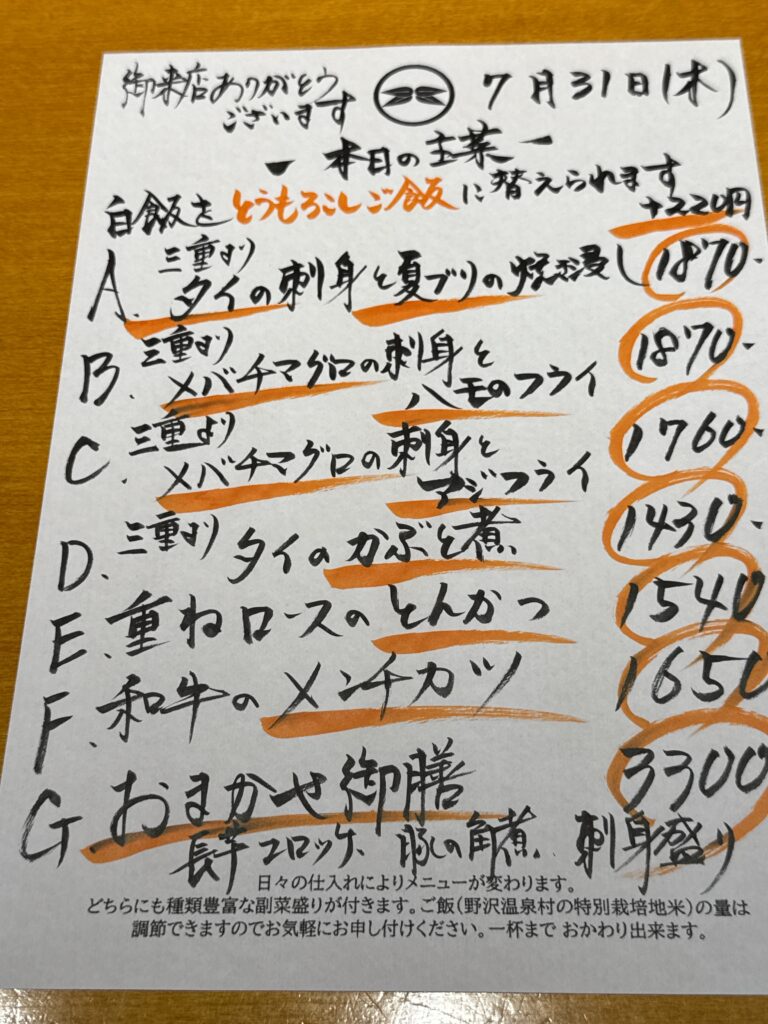 御来店ありがとう
ございます
7月31日(木)
- 本日の主菜 -
白飯をとうもろこしご飯に替えられます
+220円
A. 三重より
タイの刺身と夏ブリの焼浸し 1870-
B. 三重より
メバチマグロの刺身と
ハモのフライ 1870-
C. 三重より
メバチマグロの刺身と
アジフライ 1760-
D. 三重より
タイのかぶと煮 1430-
E. 重ねロースのとんかつ 1540
F. 和牛のメンチカツ 1650
G. おまかせ御膳 3300
長芋コロッケ、豚の角煮、刺身盛り
日々の仕入れによりメニューが変わります。
どちらにも種類豊富な副菜盛りが付きます。ご飯(野沢温泉村の特別栽培地米)の量は
調節できますのでお気軽にお申し付けください。一杯まで おかわり出来ます。